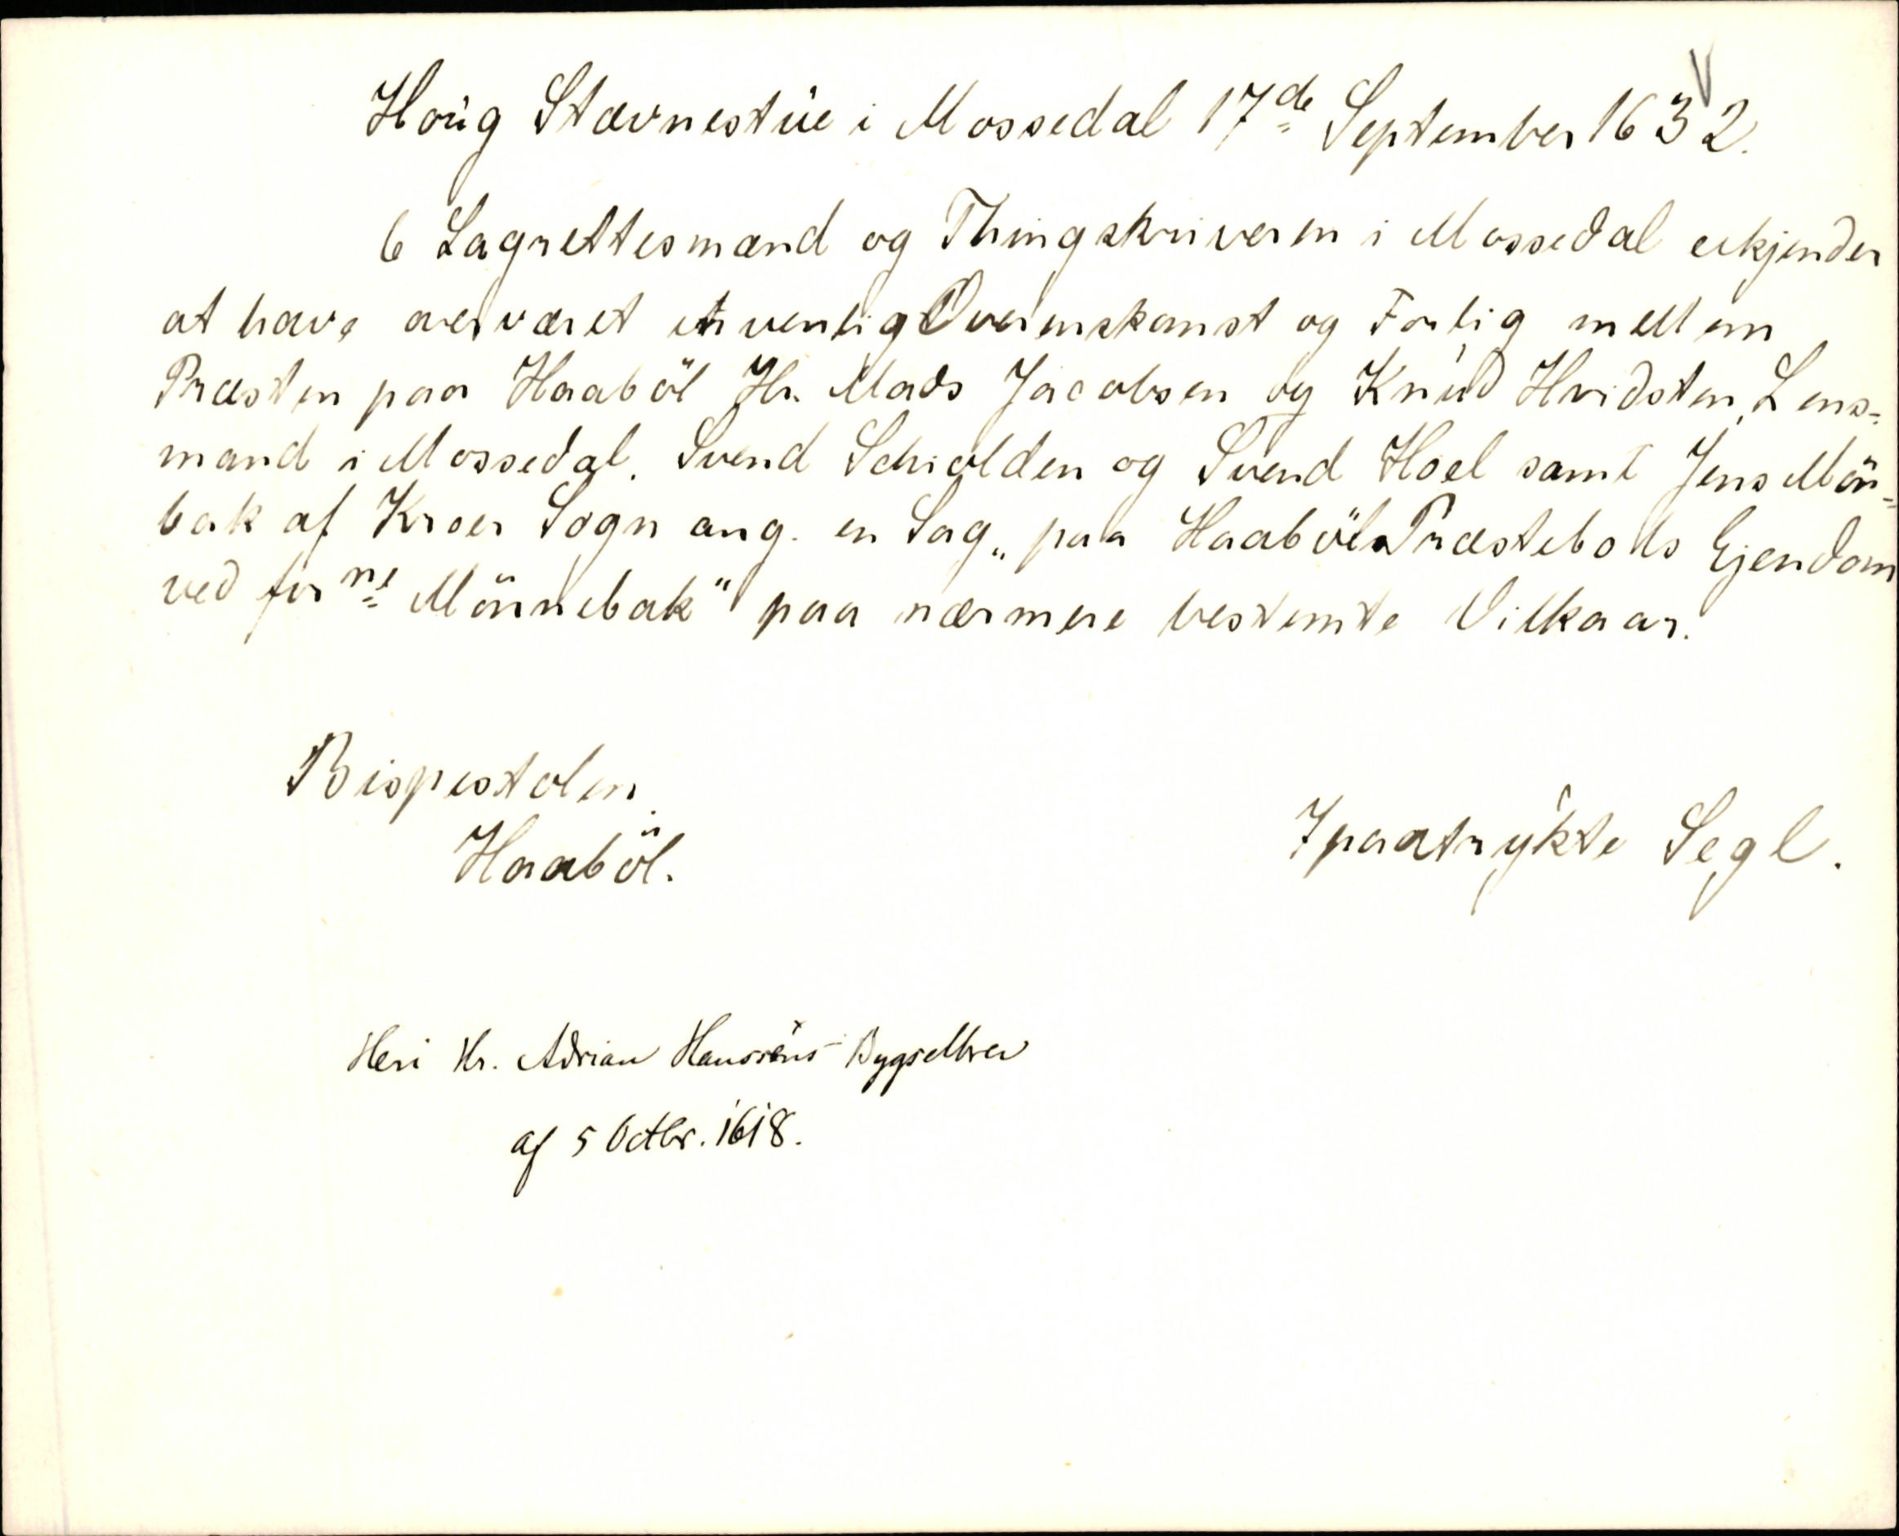 Houg Stævnestue i Mossedal 17de September 1632.
6 Lagrettesmænd og Thingskriveren i Mossedal erkjender
at have overværet en venlig Overenskomst og Forlig mellem
Præsten paa Haaböl Hr. Mads Jacobsen og Knud Hvidsten, Lens-
mand i Mossedal. Svend Schiolden og Svend Hoel samt Jens Mön-
bak af Kroer Sogn ang. en Sag „paa Haaböls Præstebols Ejendom
ved forne Mönnebak" paa nærmere bestemte Vilkaar.
Bispestolen.
Haaböl.
7 paatrykte Segl.
Heri Hr. Adrian Hanssens Bygselbrev
af 5 Octbr. 1618.